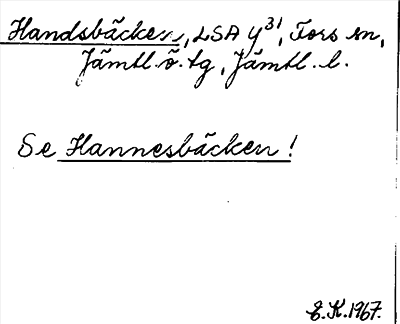 Handsbäcken, LSA y³¹, Fors sn,
Jämtl. ö. tg, Jämtl. l.
Se Hannesbäcken!
E. K. 1967.